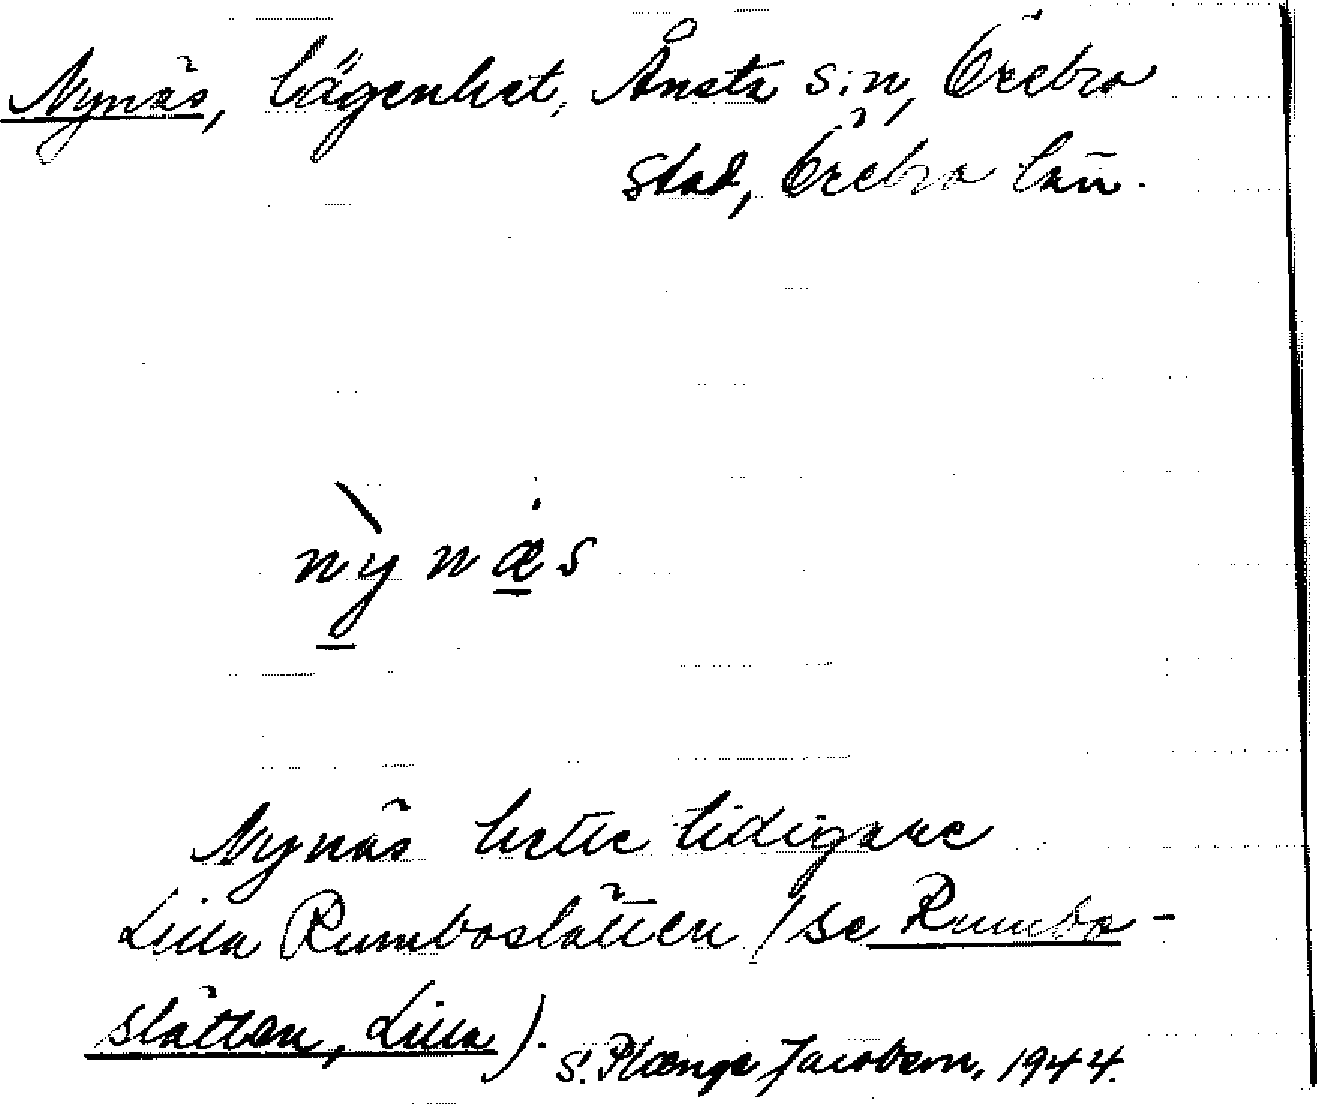 Nynäs, lägenhet, Ånsta s:n, Örebro
stad, Örebro län.
nỳnæs
Nynäs hette tidigare
Lilla Rumboslätten (se Rumbo-
slätten, Lilla).
S. Plænge Jacobson, 1944.